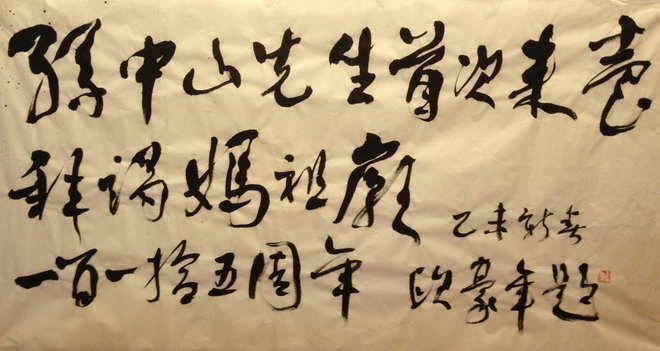 孫中山先生首次来臺
拜謁媽祖廟
乙未新春
一百一拾五周年
欧豪年題